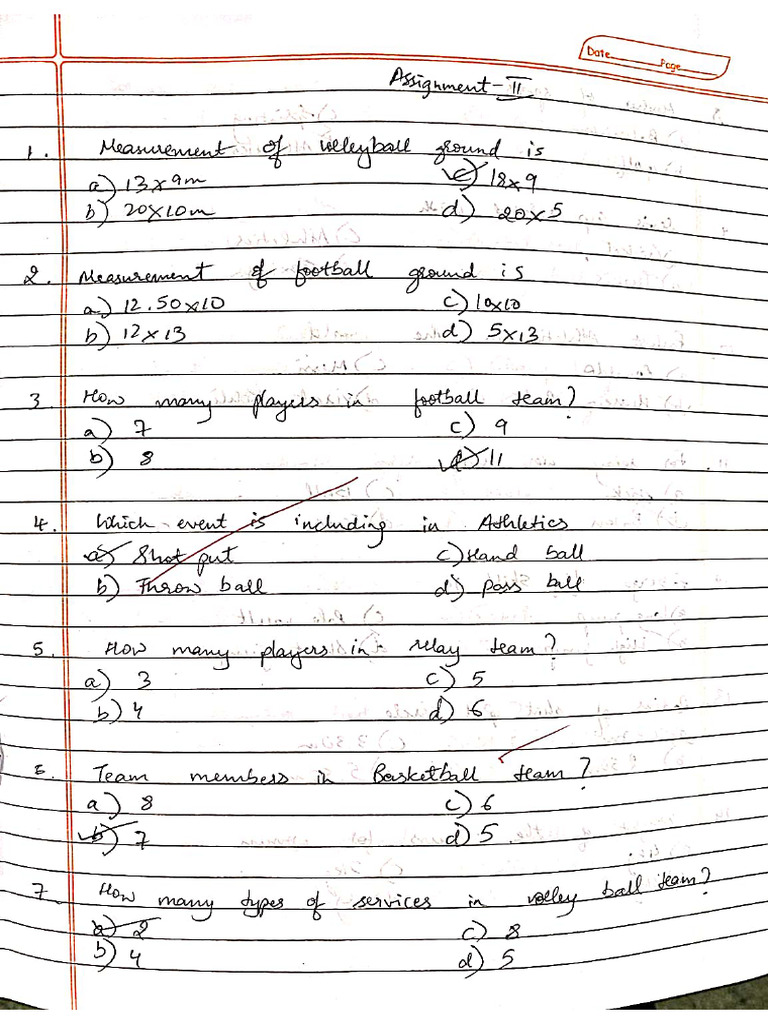 Date Page
Assignment-II
1. Measurement of volleyball ground is
a) 13x9m c) 18x9
b) 20x10m d) 20x5
2. Measurement of football ground is
a) 12.50x10 c) 10x10
b) 12x13 d) 5x13
3. How many players in football team?
a) 7 c) 9
b) 8 d) 11
4. Which event is including in Athletics
a) Shot put c) Hand ball
b) Throw ball d) pass ball
5. How many players in relay team?
a) 3 c) 5
b) 4 d) 6
6. Team members in Basketball team?
a) 8 c) 6
b) 7 d) 5
7. How many types of services in volley ball team?
a) 2 c) 8
b) 4 d) 5